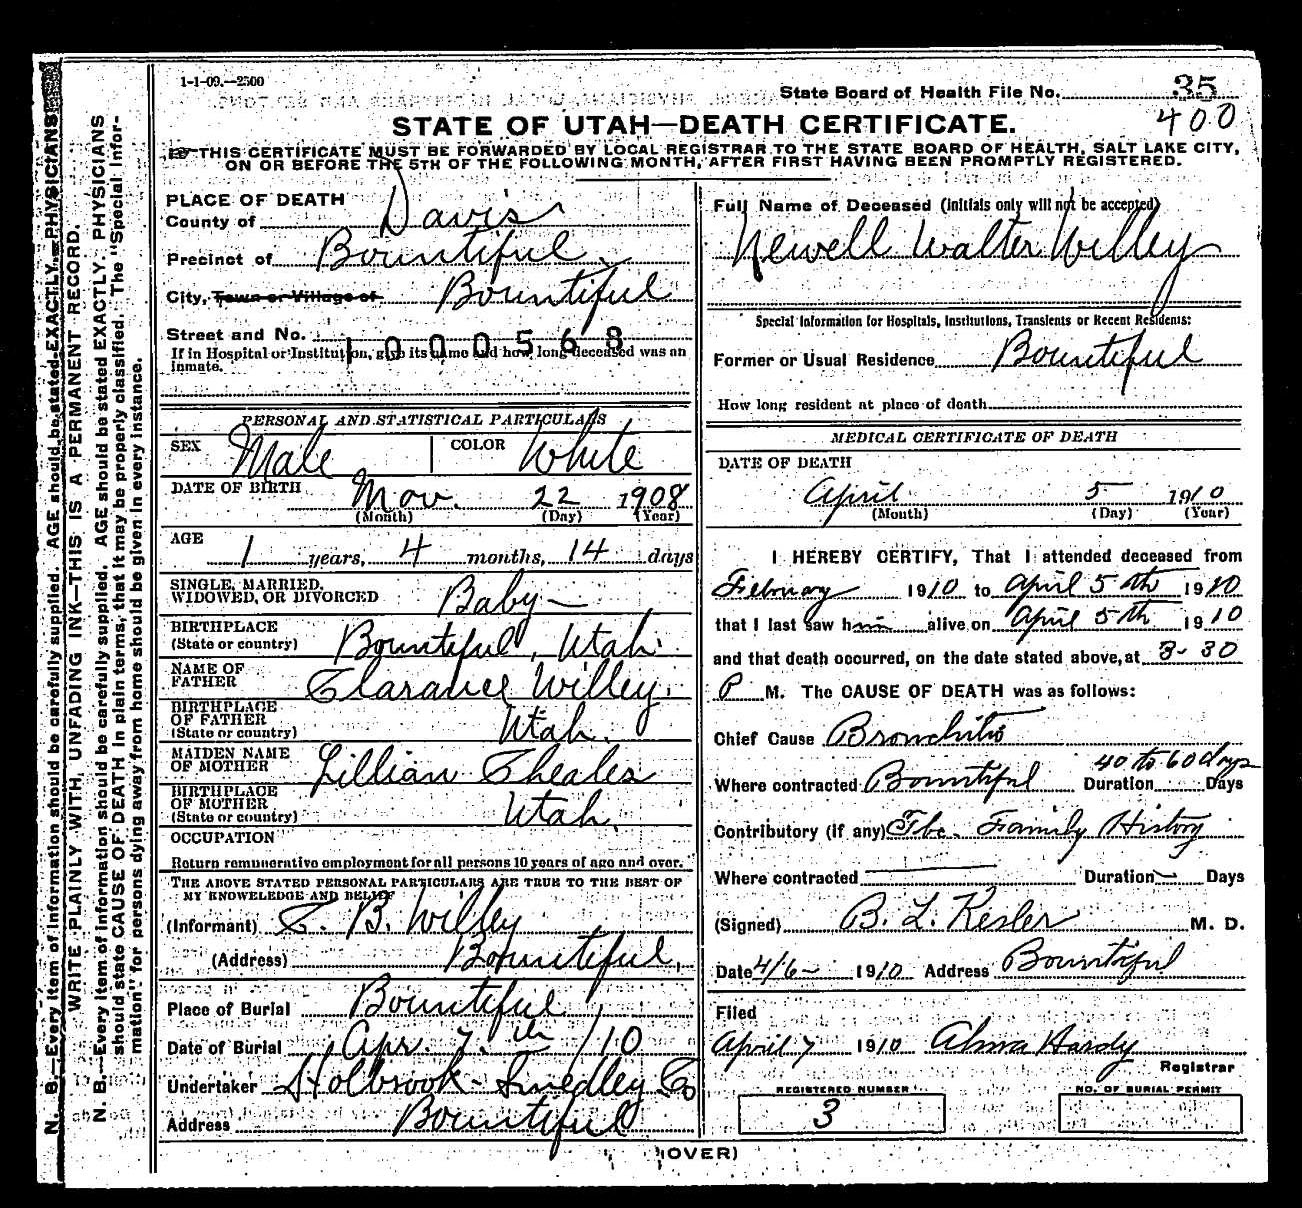 1-1-09.—2500
State Board of Health File No. 35
400
STATE OF UTAH—DEATH CERTIFICATE.
THIS CERTIFICATE MUST BE FORWARDED BY LOCAL REGISTRAR TO THE STATE BOARD OF HEALTH, SALT LAKE CITY,
ON OR BEFORE THE 5TH OF THE FOLLOWING MONTH, AFTER FIRST HAVING BEEN PROMPTLY REGISTERED.
PLACE OF DEATH
County of Davis
Precinct of Bountiful
City, Town or Village of Bountiful
Street and No.
1000568
If in Hospital or Institution, give its name and how long deceased was an
Inmate.
PERSONAL AND STATISTICAL PARTICULARS
SEX Male COLOR White
DATE OF BIRTH Nov. 22 1908
(Month) (Day) (Year)
AGE
1 years, 4 months, 14 days
SINGLE, MARRIED,
WIDOWED, OR DIVORCED Baby
BIRTHPLACE
(State or country) Bountiful, Utah.
NAME OF
FATHER Clarance Willey.
BIRTHPLACE
OF FATHER
(State or country) Utah.
MAIDEN NAME
OF MOTHER Lillian
BIRTHPLACE
OF MOTHER
(State or country) Utah.
OCCUPATION
Return remunerative employment for all persons 10 years of age and over.
THE ABOVE STATED PERSONAL PARTICULARS ARE TRUE TO THE BEST OF
MY KNOWLEDGE AND BELIEF
(Informant) C. B. Willey
(Address) Bountiful.
Place of Burial Bountiful
Date of Burial Apr. 7. th /10
Undertaker Holbrook-Smedley Co
Address Bountiful
Full Name of Deceased (Initials only will not be accepted)
Newell Walter Willey
Special Information for Hospitals, Institutions, Transients or Recent Residents:
Former or Usual Residence Bountiful
How long resident at place of death
MEDICAL CERTIFICATE OF DEATH
DATE OF DEATH
April 5 1910
(Month) (Day) (Year)
I HEREBY CERTIFY, That I attended deceased from
February 1910 to April 5th 1910
that I last saw him alive on April 5th 1910
and that death occurred, on the date stated above, at 3-30
P M. The CAUSE OF DEATH was as follows:
Chief Cause Bronchitis
40 to 60 days
Where contracted Bountiful Duration Days
Contributory (if any) Tbc. Family History
Where contracted Duration Days
(Signed) B. L. Kesler M. D.
Date 4/6- 1910 Address Bountiful
Filed
April 7 1910 Alma Hardy
Registrar
REGISTERED NUMBER
3
NO. OF BURIAL PERMIT
(OVER)
N. B.—Every item of information should be carefully supplied. AGE should be stated EXACTLY. PHYSICIANS
WRITE PLAINLY WITH UNFADING INK—THIS IS A PERMANENT RECORD.
N. B.—Every item of information should be carefully supplied. AGE should be stated EXACTLY. PHYSICIANS
should state CAUSE OF DEATH in plain terms, that it may be properly classified. The "Special Infor-
mation" for persons dying away from home should be given in every instance.